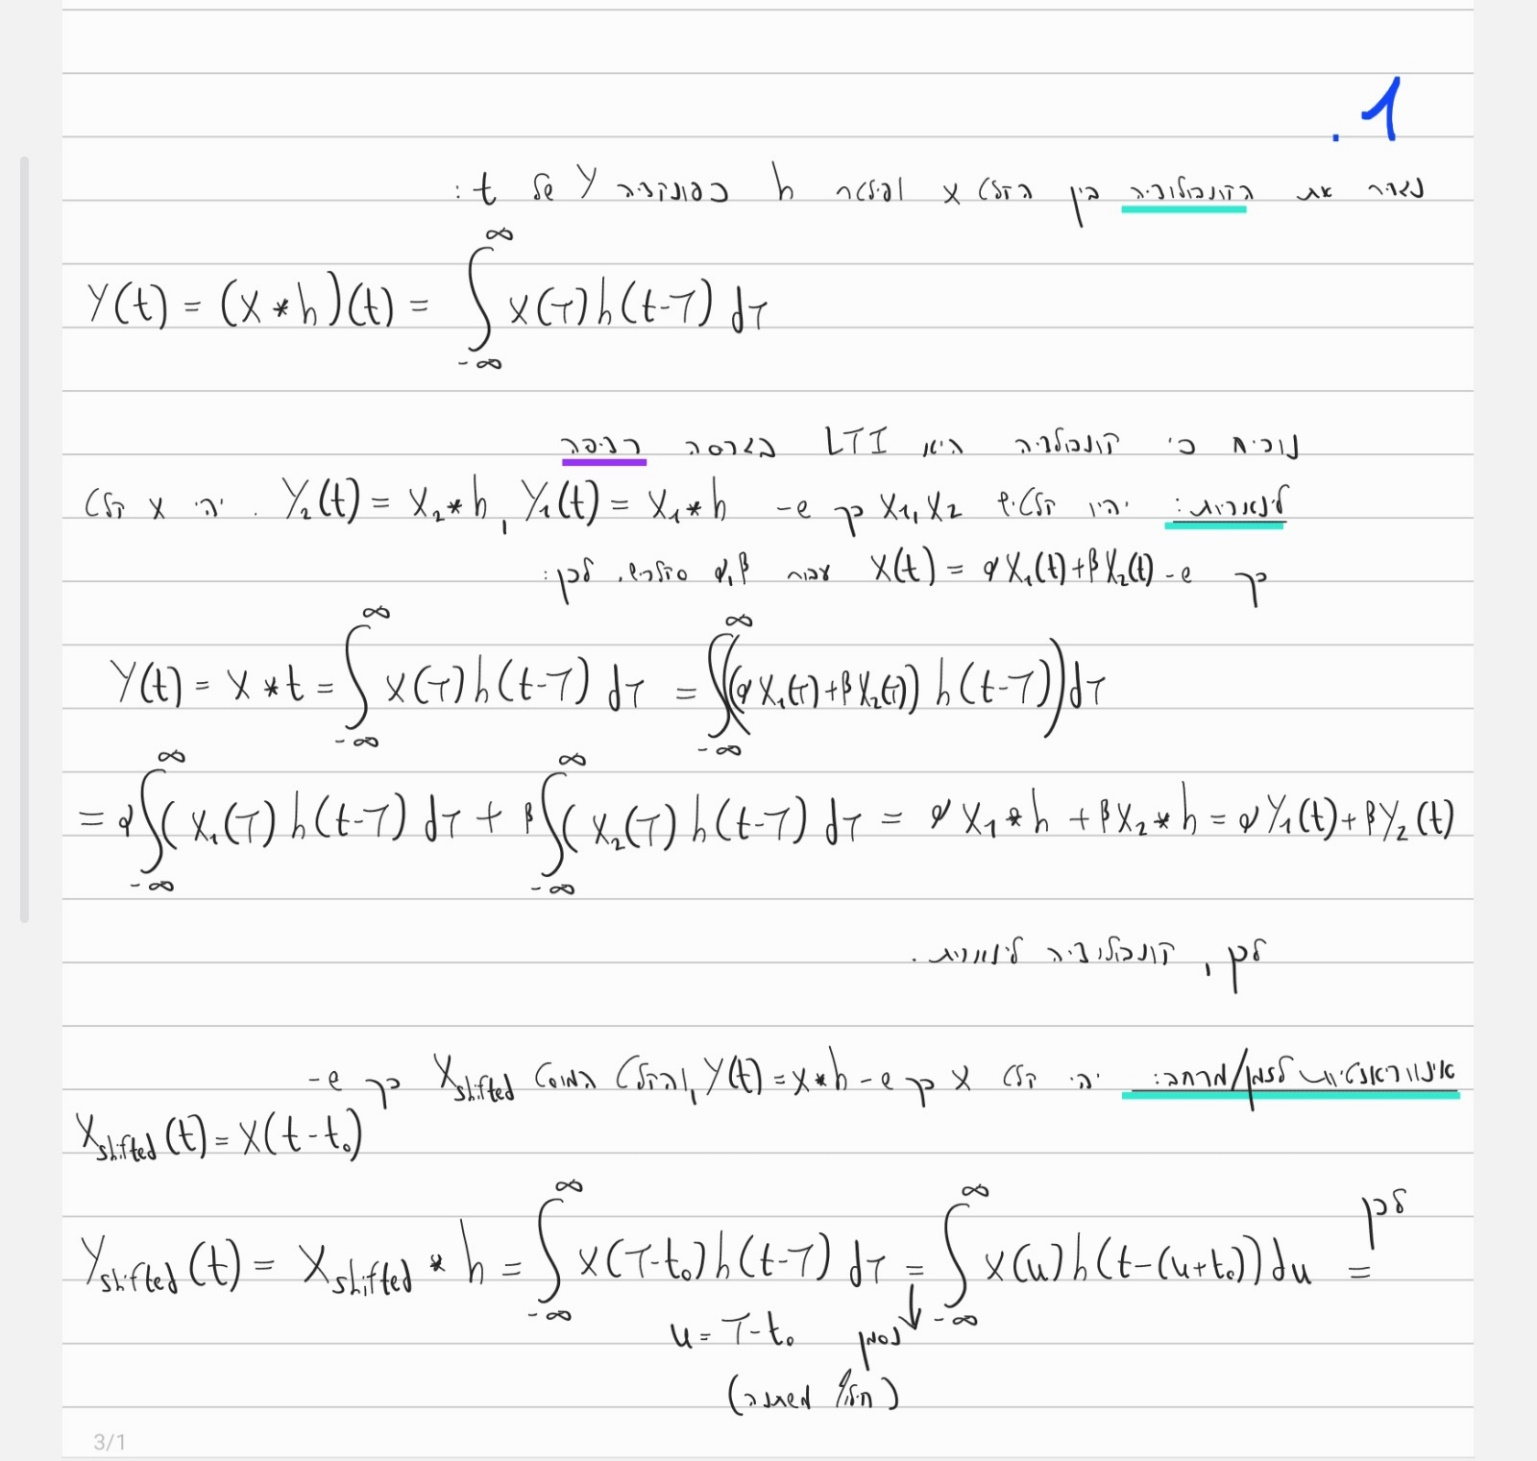 1.
נגדיר את הקונבולוציה בין הקלט x לפילטר h כפונקציה Y של t:
Y(t) = (x*h)(t) = ∫_{-∞}^{∞} x(τ)h(t-τ) dτ
נוכיח כי קונבולוציה היא LTI בגרסה רציפה
לינאריות: יהיו קלטים x₁,x₂ כך ש- Y₁(t) = x₁*h, Y₂(t) = x₂*h. יהי x קלט
כך ש- x(t) = αx₁(t)+βx₂(t) עבור α,β סקלרים. לכן:
Y(t) = x*t = ∫_{-∞}^{∞} x(τ)h(t-τ) dτ = ∫_{-∞}^{∞}((αx₁(τ)+βx₂(τ)) h(t-τ))dτ
= α∫_{-∞}^{∞}(x₁(τ)h(t-τ) dτ + β∫_{-∞}^{∞}(x₂(τ)h(t-τ) dτ = αx₁*h + βx₂*h = αY₁(t)+βY₂(t)
לכן, קונבולוציה לינארית.
אינווריאנטיות לזמן/מרחב: יהי קלט x כך ש- Y(t)=x*h, והקלט המוסט x_shifted כך ש-
x_shifted(t)=x(t-t₀)
לכן Y_shifted(t) = x_shifted * h = ∫_{-∞}^{∞} x(τ-t₀)h(t-τ) dτ = ∫_{-∞}^{∞} x(u)h(t-(u+t₀))du =
נסמן u=τ-t₀
(חילוף משתנה)
3/1